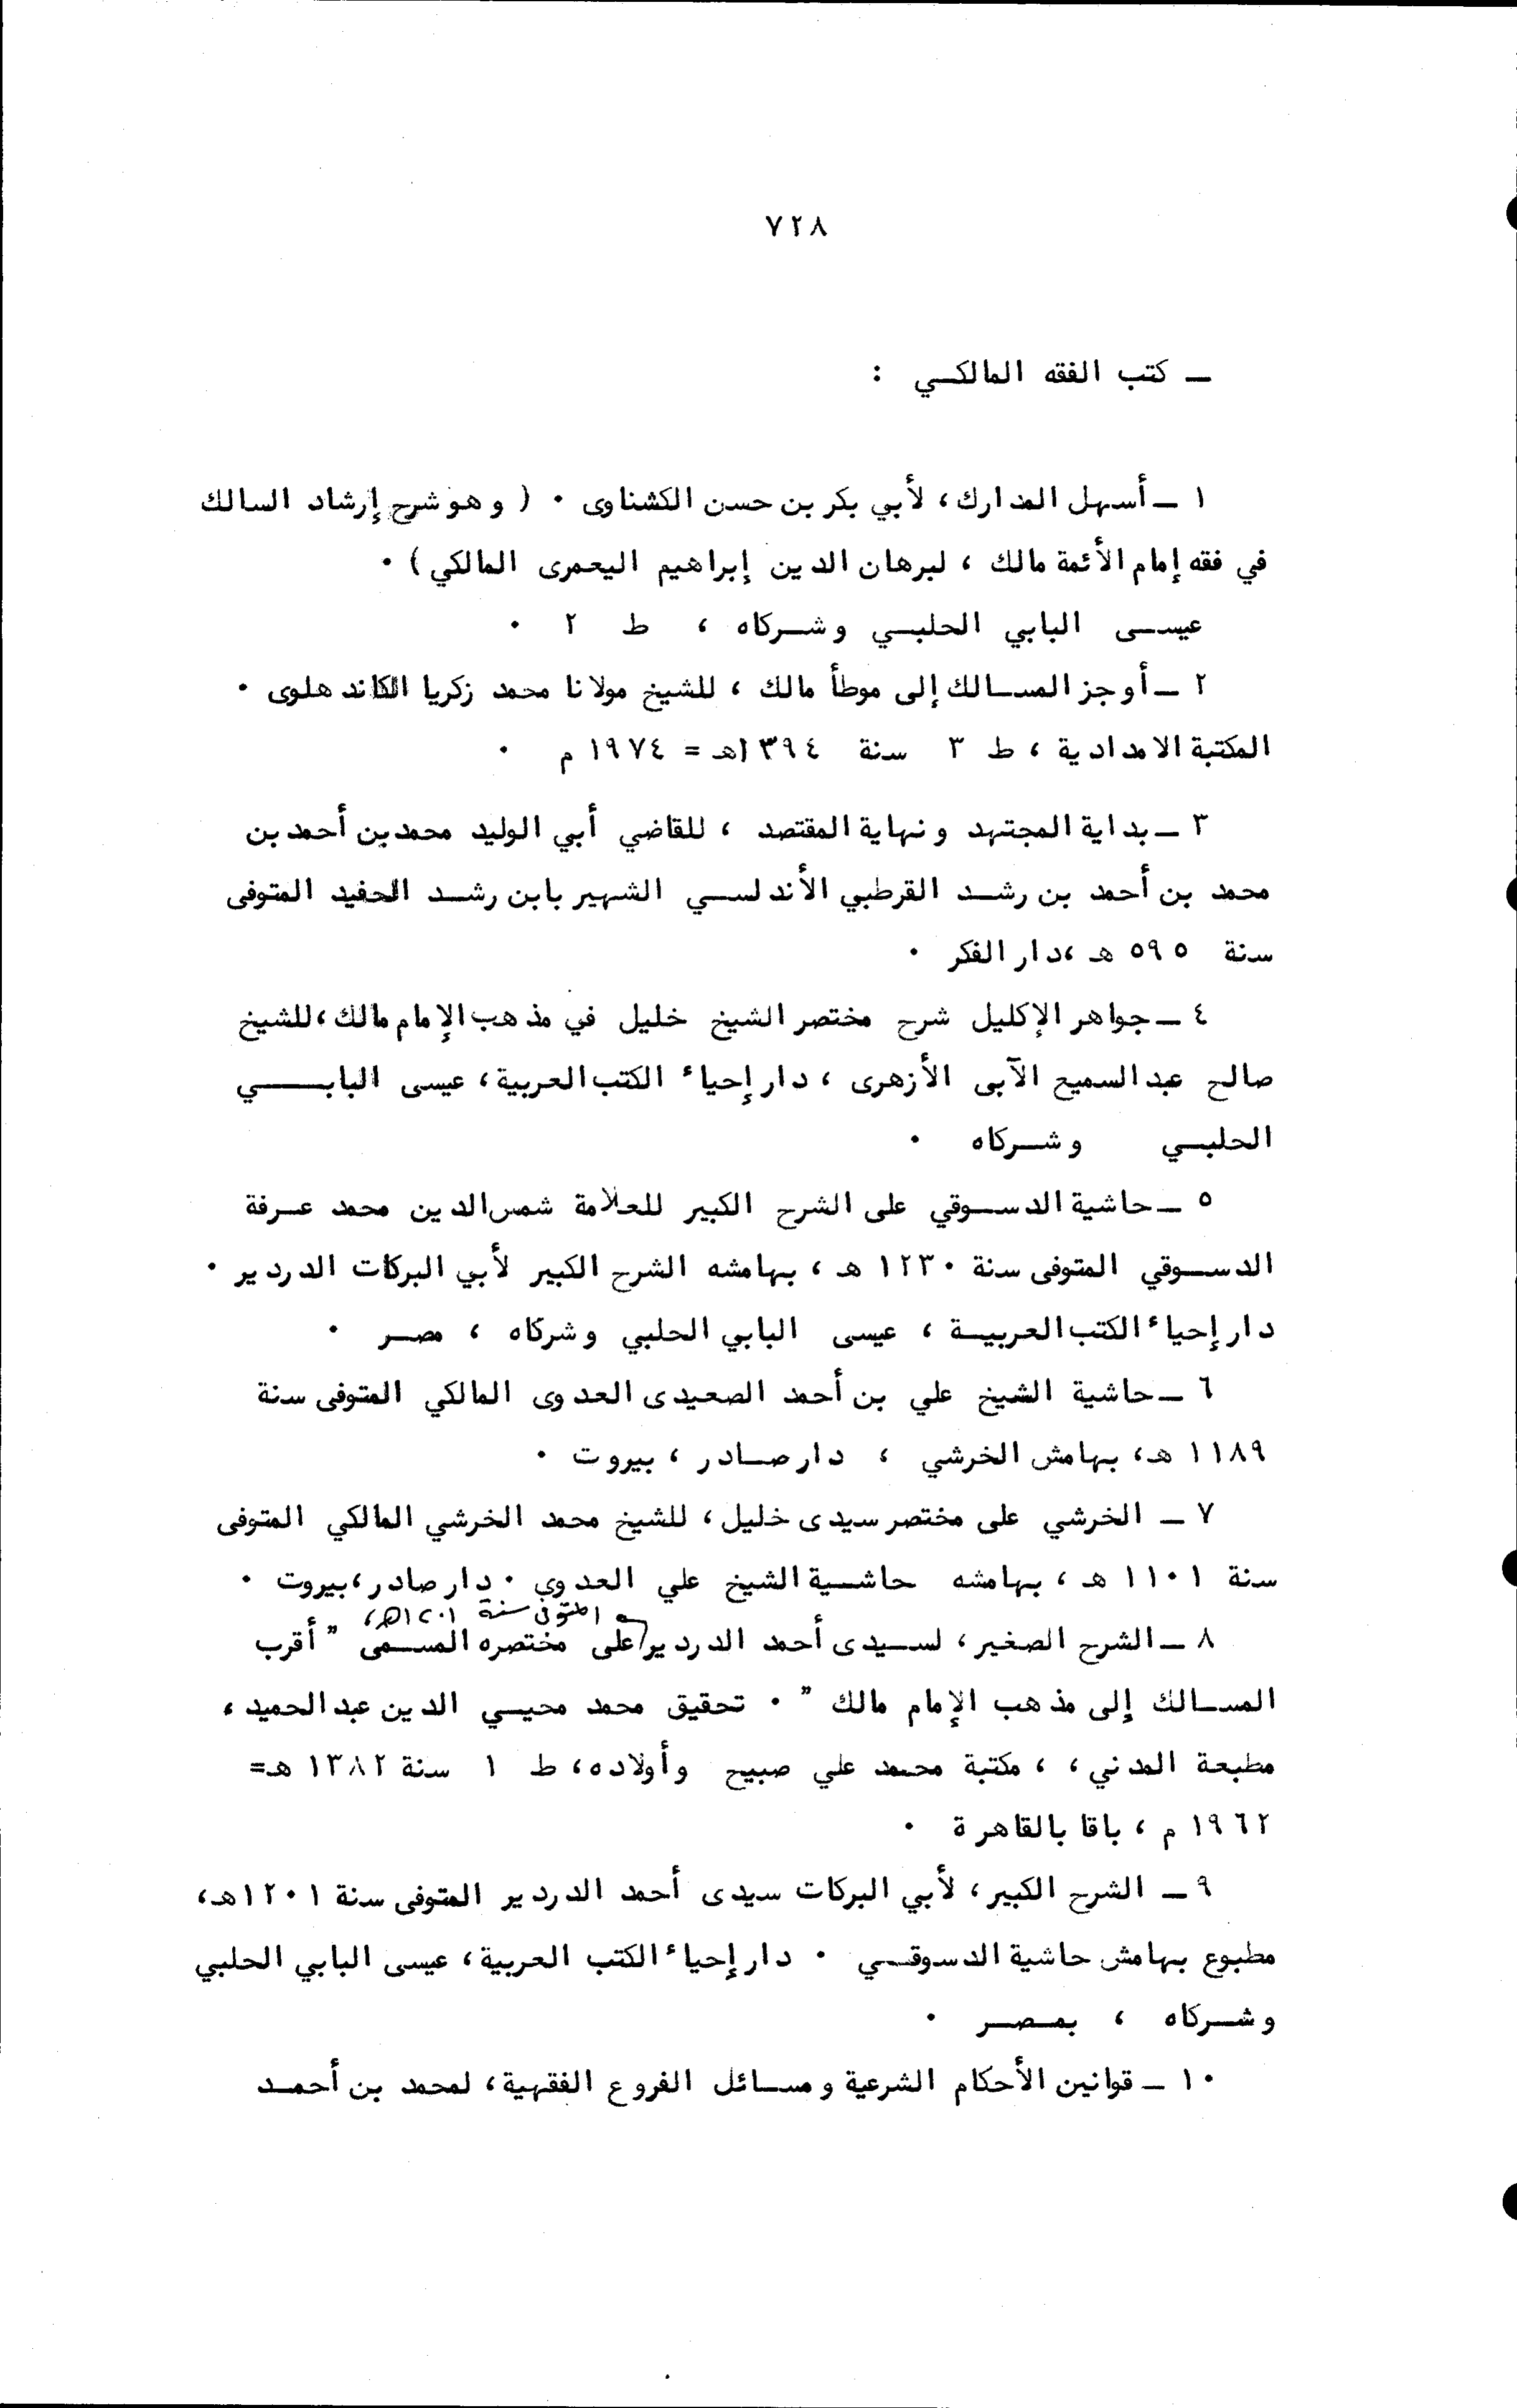 ٧٢٨
ـ كتب الفقه المالكي :
١ ـ أسهل المدارك، لأبي بكر بن حسن الكشناوى ٠ ( وهو شرح إرشاد السالك
في فقه إمام الأئمة مالك ، لبرهان الدين إبراهيم اليعمرى المالكي ) ٠
عيسى البابي الحلبي وشركاه ، ط ٢ ٠
٢ ـ أوجز المسالك إلى موطأ مالك ، للشيخ مولانا محمد زكريا الكاندهلوى ٠
المكتبة الامدادية ، ط ٣ سنة ١٣٩٤هـ = ١٩٧٤ م ٠
٣ ـ بداية المجتهد ونهاية المقتصد ، للقاضي أبي الوليد محمد بن أحمد بن
محمد بن أحمد بن رشد القرطبي الأندلسي الشهير بابن رشد الحفيد المتوفى
سنة ٥٩٥ هـ ،دار الفكر ٠
٤ ـ جواهر الإكليل شرح مختصر الشيخ خليل في مذهب الإمام مالك ،للشيخ
صالح عبد السميع الآبى الأزهرى ، دار إحياء الكتب العربية، عيسى البابي
الحلبي وشركاه ٠
٥ ـ حاشية الدسوقي على الشرح الكبير للعلامة شمس الدين محمد عرفة
الدسوقي المتوفى سنة ١٢٣٠ هـ ، بهامشه الشرح الكبير لأبي البركات الدردير ٠
دار إحياء الكتب العربية ، عيسى البابي الحلبي وشركاه ، مصر ٠
٦ ـ حاشية الشيخ علي بن أحمد الصعيدى العدوى المالكي المتوفى سنة
١١٨٩ هـ، بهامش الخرشي ، دار صادر ، بيروت ٠
٧ ـ الخرشي على مختصر سيدى خليل ، للشيخ محمد الخرشي المالكي المتوفى
سنة ١١٠١ هـ ، بهامشه حاشية الشيخ علي العدوي ٠ دار صادر ،بيروت ٠
المتوفى سنة ١٢٠١هـ،
٨ ـ الشرح الصغير ، لسيدى أحمد الدردير/على مختصره المسمى " أقرب
المسالك إلى مذهب الإمام مالك " ٠ تحقيق محمد محيي الدين عبد الحميد ،
مطبعة المدني ، ، مكتبة محمد علي صبيح وأولاده، ط ١ سنة ١٣٨٢ هـ=
١٩٦٢ م ، باقا بالقاهرة ٠
٩ ـ الشرح الكبير ، لأبي البركات سيدى أحمد الدردير المتوفى سنة ١٢٠١هـ،
مطبوع بهامش حاشية الدسوقي ٠ دار إحياء الكتب العربية، عيسى البابي الحلبي
وشركاه ، بمصر ٠
١٠ ـ قوانين الأحكام الشرعية ومسائل الفروع الفقهية، لمحمد بن أحمد